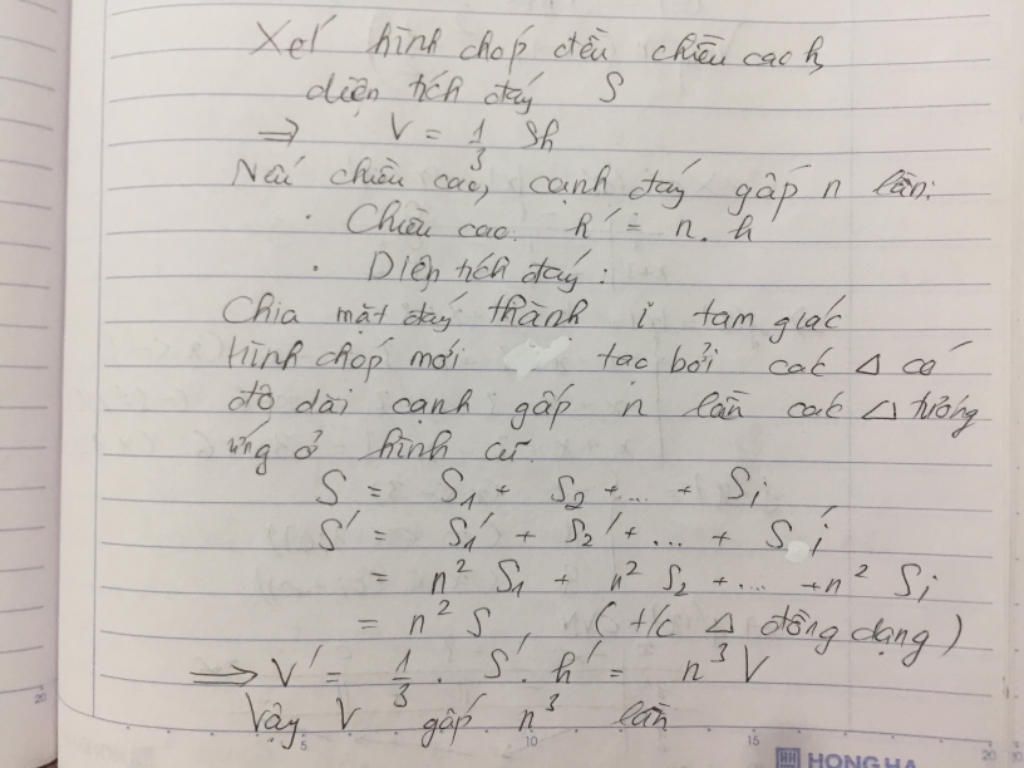 Xét hình chóp đều chiều cao h,
diện tích đáy S
=> V = 1/3 Sh
Nếu chiều cao, cạnh đáy gấp n lần:
· Chiều cao. h' = n. h
· Diện tích đáy:
Chia mặt đáy thành i tam giác
hình chóp mới tạo bởi các Δ có
độ dài cạnh gấp n lần các Δ tương
ứng ở hình cũ.
S = S₁ + S₂ + ... + Si
S' = S₁' + S₂' + ... + Si'
= n² S₁ + n² S₂ + ... + n² Si
= n² S (t/c Δ đồng dạng)
=> V' = 1/3 . S' . h' = n³ V
Vậy V gấp n³ lần
20 5 10 15 20
HONG HA